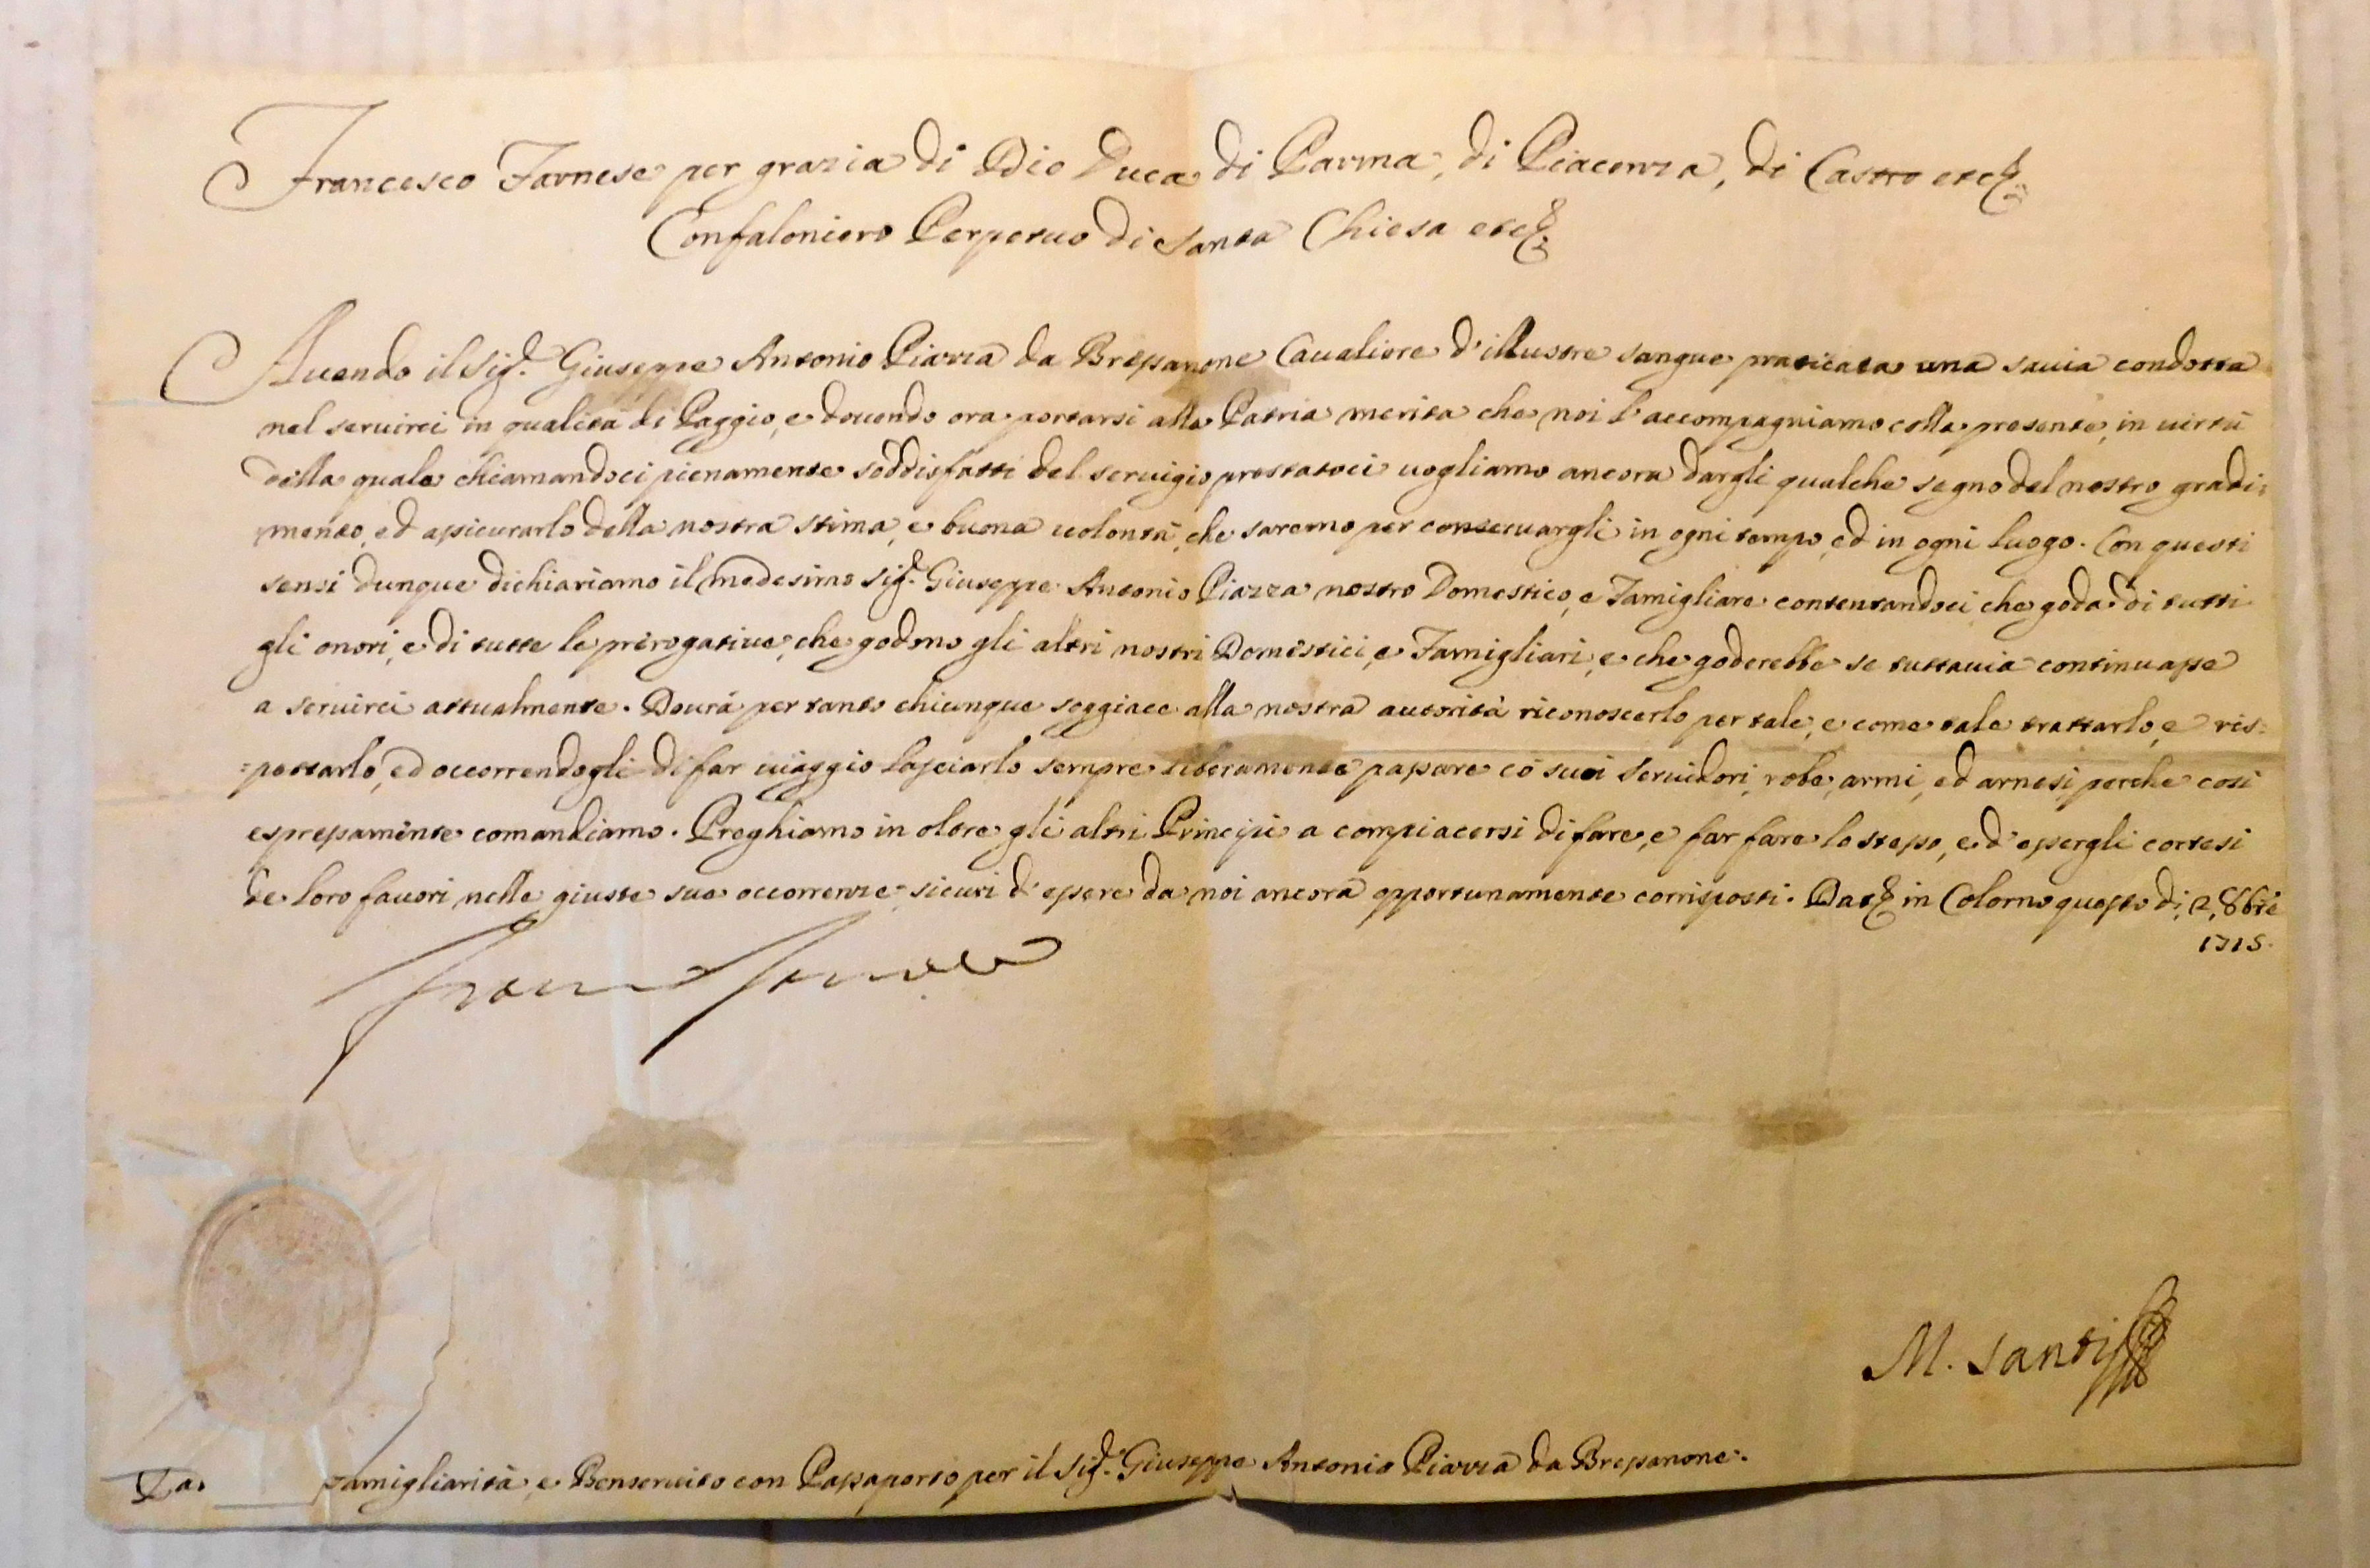 Francesco Farnese per grazia di Dio Duca di Parma, di Piacenza, di Castro etc.
Confaloniero Perpetuo di Santa Chiesa etc.
Avendo il Sig.r Giuseppe Antonio Piazza da Bressanone Cavaliere d'illustre sangue praticata una savia condotta
nel servirci in qualità di Paggio, e dovendo ora portarsi alla Patria merita che noi l'accompagniamo colla presente, in virtù
della quale chiamandoci pienamente soddisfatti del servigio prestatoci vogliamo ancora dargli qualche segno del nostro gradi=
mento, ed assicurarlo della nostra stima, e buona volontà, che saremo per conservargli in ogni tempo, ed in ogni luogo. Con questi
sensi dunque dichiariamo il medesimo Sig.r Giuseppe Antonio Piazza nostro Domestico, e Famigliare contentandoci, che goda di tutti
gli onori, e di tutte le prerogative, che godono gli altri nostri Domestici, e Famigliari, e che goderebbe se tuttavia continuasse
a servirci attualmente. Dovrà per tanto chiunque soggiace alla nostra autorità riconoscerlo per tale, e come tale trattarlo, e ris=
=pettarlo, ed occorrendogli di far viaggio lasciarlo sempre liberamente passare co' suoi servidori, robe, armi, ed arnesi, perche così
espressamente comandiamo. Preghiamo in oltre gli altri Principi a compiacersi di fare, e far fare lo stesso, ed'essergli cortesi
de loro favori nelle giuste sue occorrenze sicuri d'essere da noi ancora opportunamente corrisposti. Dat. in Colorno questo dì, 2, 8bre
1715.
Fran.co Farnese
M. Santi
Famigliarità, e Benservito con Passaporto per il Sig.r Giuseppe Antonio Piazza da Bressanone.